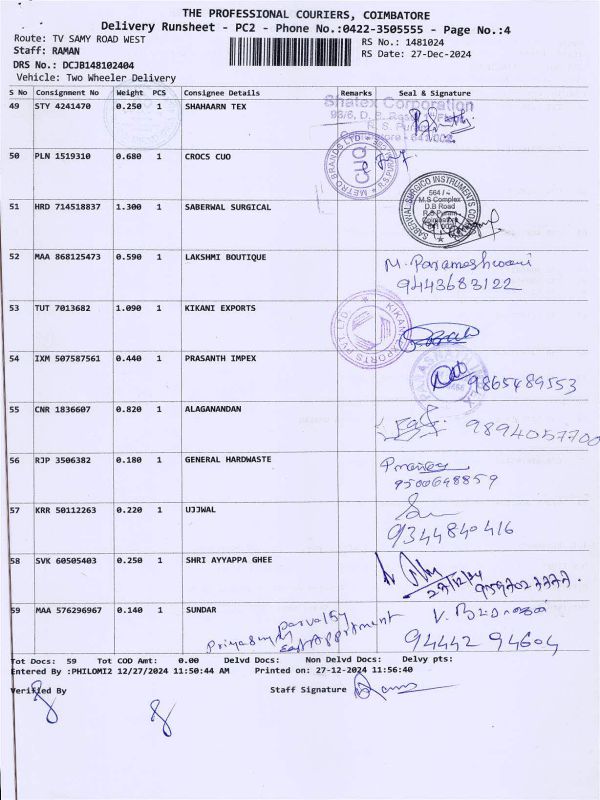 THE PROFESSIONAL COURIERS, COIMBATORE
Delivery Runsheet - PC2 - Phone No.:0422-3505555 - Page No.:4
Route: TV SAMY ROAD WEST RS No.: 1481024
Staff: RAMAN RS Date: 27-Dec-2024
DRS No.: DCJB148102404
Vehicle: Two Wheeler Delivery
S No Consignment No Weight PCS Consignee Details Remarks Seal & Signature
49 STY 4241470 0.250 1 SHAHAARN TEX
Shatex Corporation
50 PLN 1519310 0.680 1 CROCS CUO
METRO BRANDS LTD
CUO
51 HRD 714518837 1.300 1 SABERWAL SURGICAL
SABERWAL SURGICO INSTRUMENTS
564 /
M.S Complex
D.B Road
R.S Puram
52 MAA 868125473 0.590 1 LAKSHMI BOUTIQUE M. Parameshwari
9443683122
53 TUT 7013682 1.090 1 KIKANI EXPORTS
KIKANI EXPORTS PVT LTD
54 IXM 507587561 0.440 1 PRASANTH IMPEX
9865489553
55 CNR 1836607 0.820 1 ALAGANANDAN 9894057700
56 RJP 3506382 0.180 1 GENERAL HARDWASTE
9500648859
57 KRR 50112263 0.220 1 UJJWAL
9344840416
58 SVK 60505403 0.250 1 SHRI AYYAPPA GHEE
27/12/24
59 MAA 576296967 0.140 1 SUNDAR
94442 94604
Tot Docs: 59 Tot COD Amt: 0.00 Delvd Docs: Non Delvd Docs: Delvy pts:
Entered By :PHILOMI2 12/27/2024 11:50:44 AM Printed on: 27-12-2024 11:56:40
Verified By Staff Signature